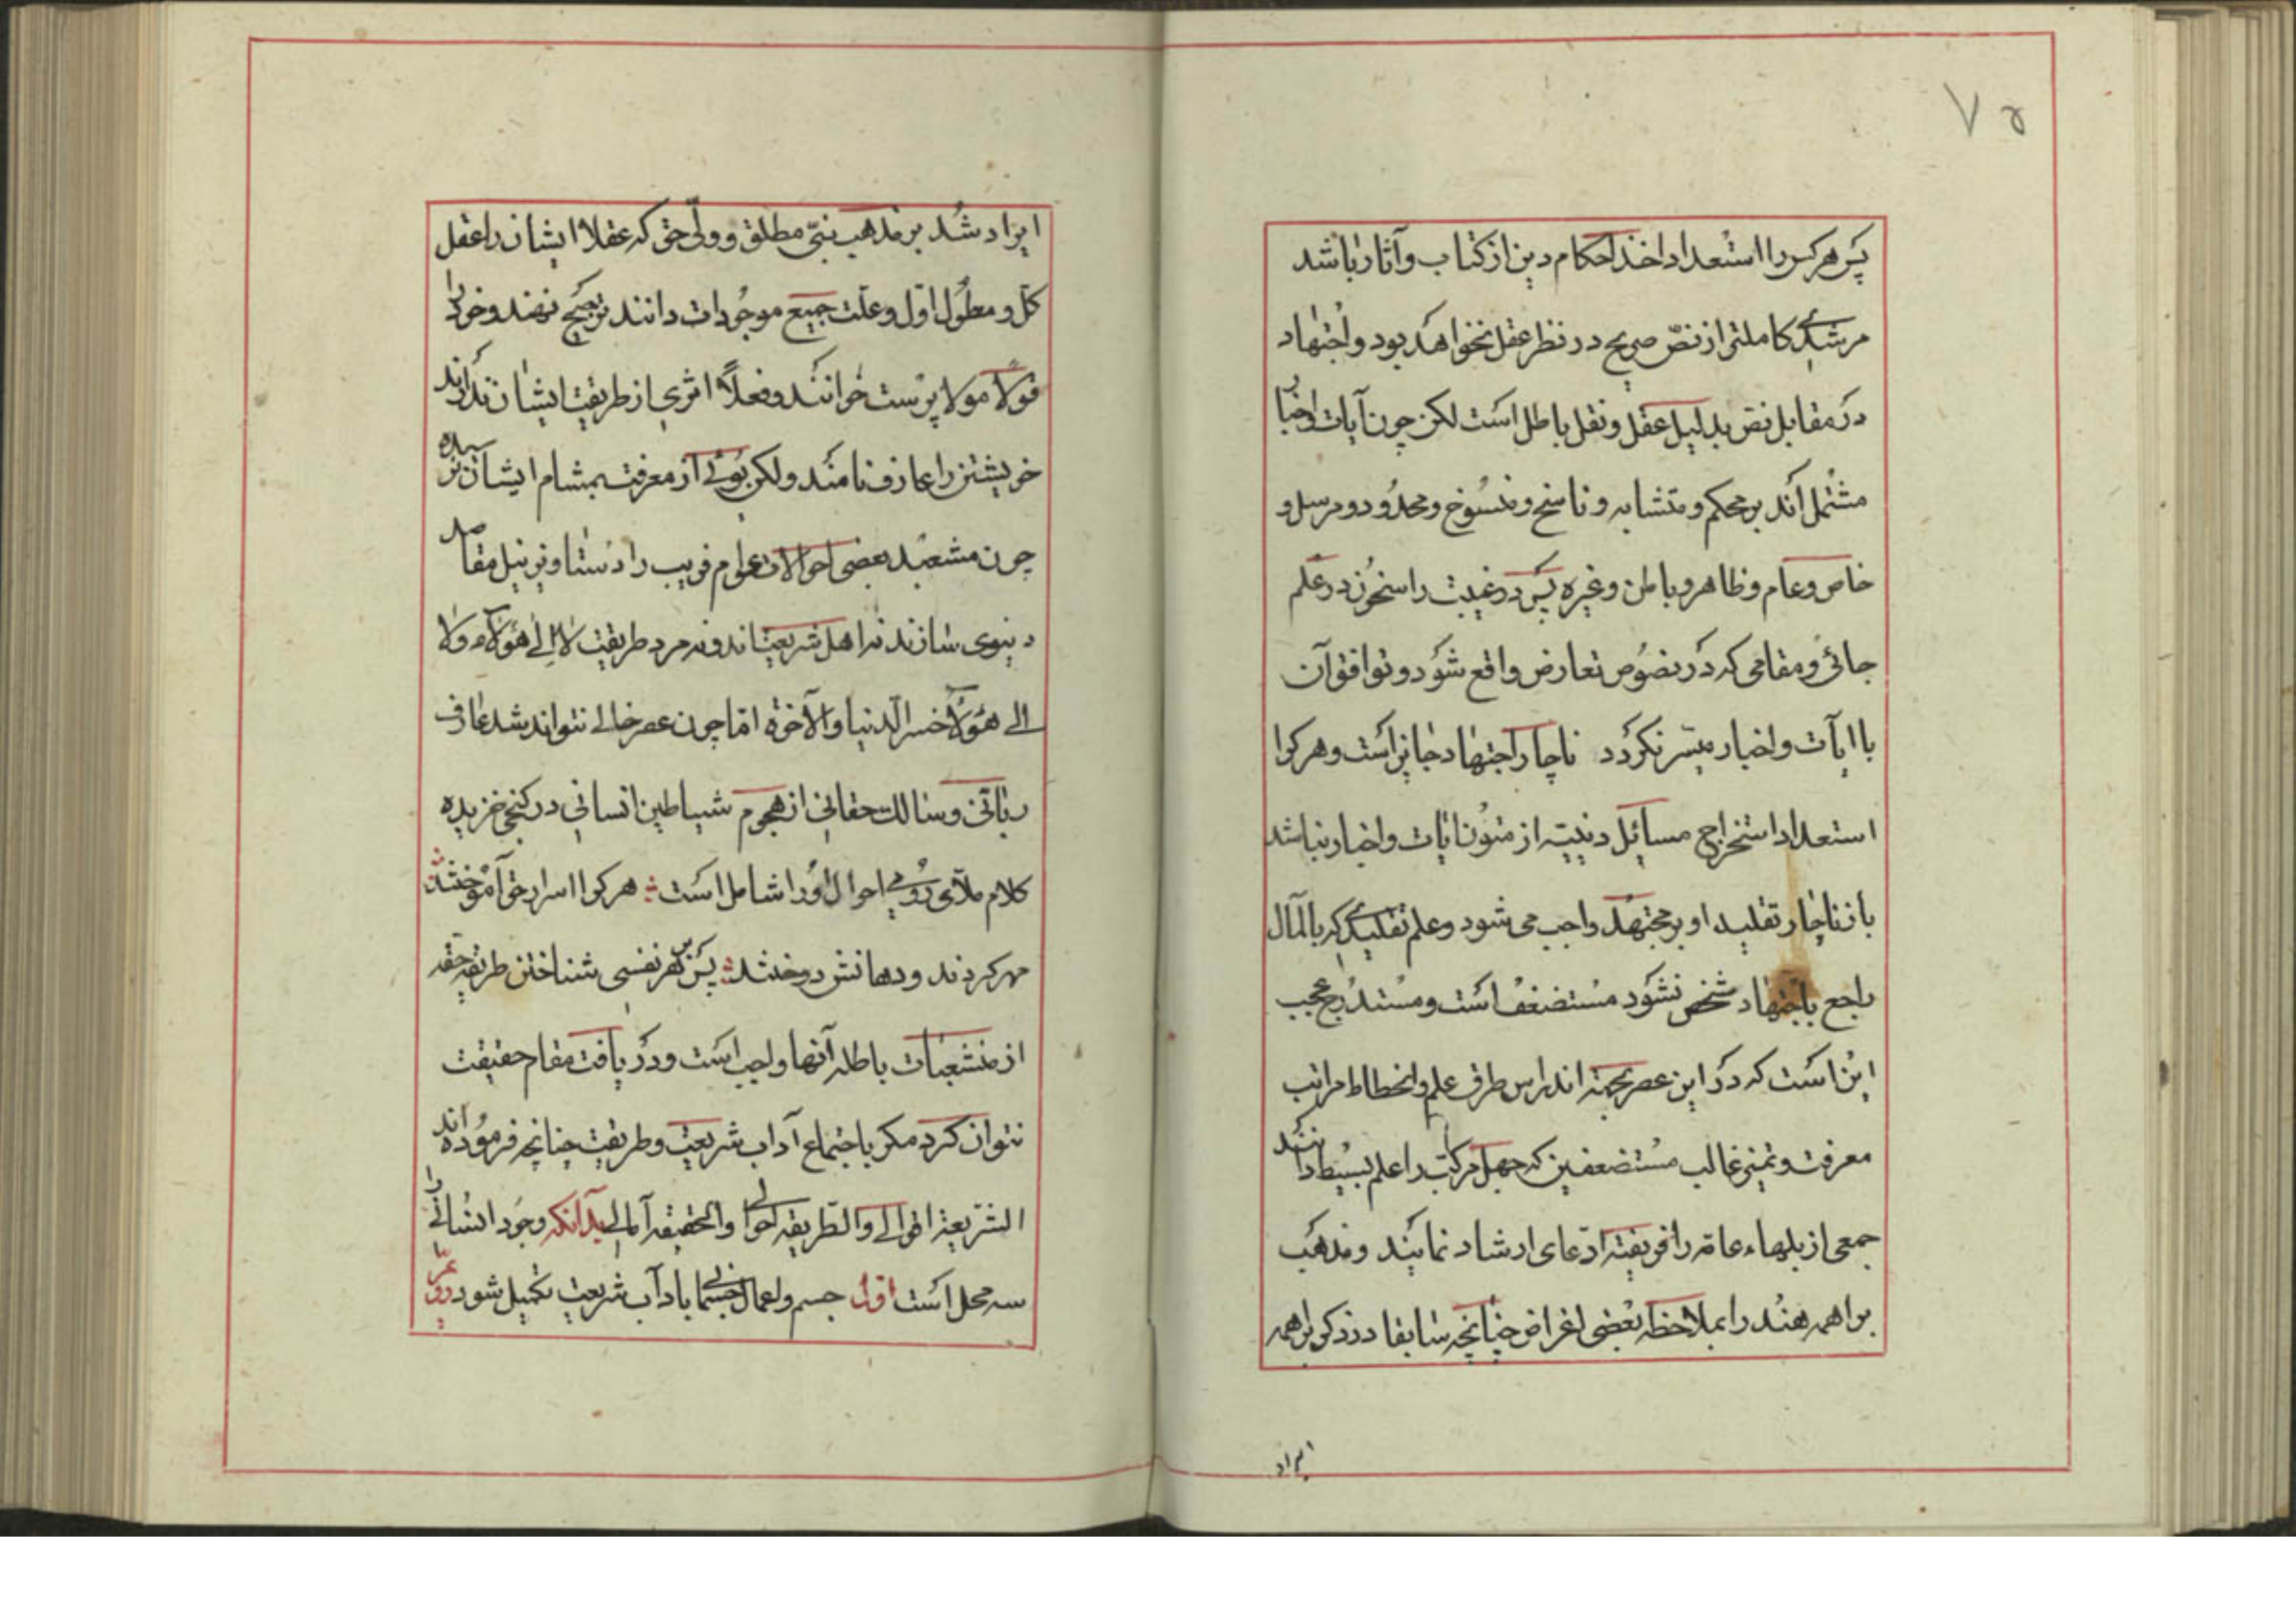 ۷۵
پس هر کس را استعداد اخذ احکام دین از کتاب و آثار باشد
مرشدی کاملتر از نصّ صریح در نظر عقل نخواهد بود و اجتهاد
در مقابل نص بدلیل عقل و نقل باطل است لکن چون آیات و اخبار
مشتمل اند بر محکم و متشابه و ناسخ و منسوخ و محدود و مرسل و
خاص و عام و ظاهر و باطن و غیره پس در غیبت راسخون در علم
جائی و مقامی که در نصوص تعارض واقع شود و توافق آن
با آیات و اخبار میسّر نگردد ناچار اجتهاد جایز است و هر کرا
استعداد استخراج مسائل دینیّه از متون ایات و اخبار نباشد
باز ناچار تقلید او بر مجتهد واجب می شود و علم تقلیدی که بالمآل
راجع باجتهاد شخص نشود مستضعف است و مستدرج عجب
این است که در این عصر بجهة اندراس طرق علم و انحطاط مراتب
معرفت و تمیز غالب مستضعفین که جهل مرکب را علم بسیط دانند
جمعی از بلهاء عامّه را فریفتهٔ ادّعای ارشاد نمایند و مذهب
براهمه هند را بملاحظهٔ بعضی اغراض چنانچه سابقا در ذکر براهمه
ایراد
ایراد شد بر مذهب نبیّ مطلق و ولیّ حق که عقلا ایشان را عقل
کل و معلول اول و علت جمیع موجودات دانند ترجیح نهند و خود را
قولا مولا پرست خوانند و فعلاً اثری از طریقت ایشان ندارند
خویشتن را عارف نامند ولکن بوئی از معرفت بمشام ایشان نرسیده
چون مشعبد بعضی احوالات عوام فریب را دستاویز نیل مقاصد
دنیوی سازند نه اهل شریعت اند و نه مرد طریقت لا الی هؤلاء ولا
الی هؤلاء خسر الدنیا والآخرة امّا چون عصر خالی نتواند شد عارف
ربّانی و سالک حقانی از هجوم شیاطین انسانی در کنجی خزیده
کلام ملّای رومی احوال او را شامل است هر کرا اسرار حق آموختند
مهر کردند و دهانش دوختند پس بر هر نفسی شناختن طریقهٔ حقه
از منشعبات باطله آنها واجب است و دریافت مقام حقیقت
نتوان کرد مگر باجتماع آداب شریعت و طریقت چنانچه فرموده اند
الشریعة اقوالی والطریقه احوالی والحقیقه آمالی بدانکه وجود انسانی را
سه محل است اول جسم و اعمال جسمانی باداب شریعت تکمیل شود